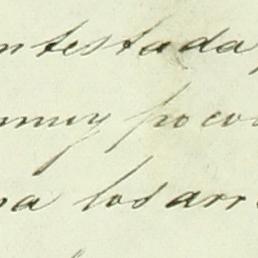 ntestada,
muy poco
na los arr